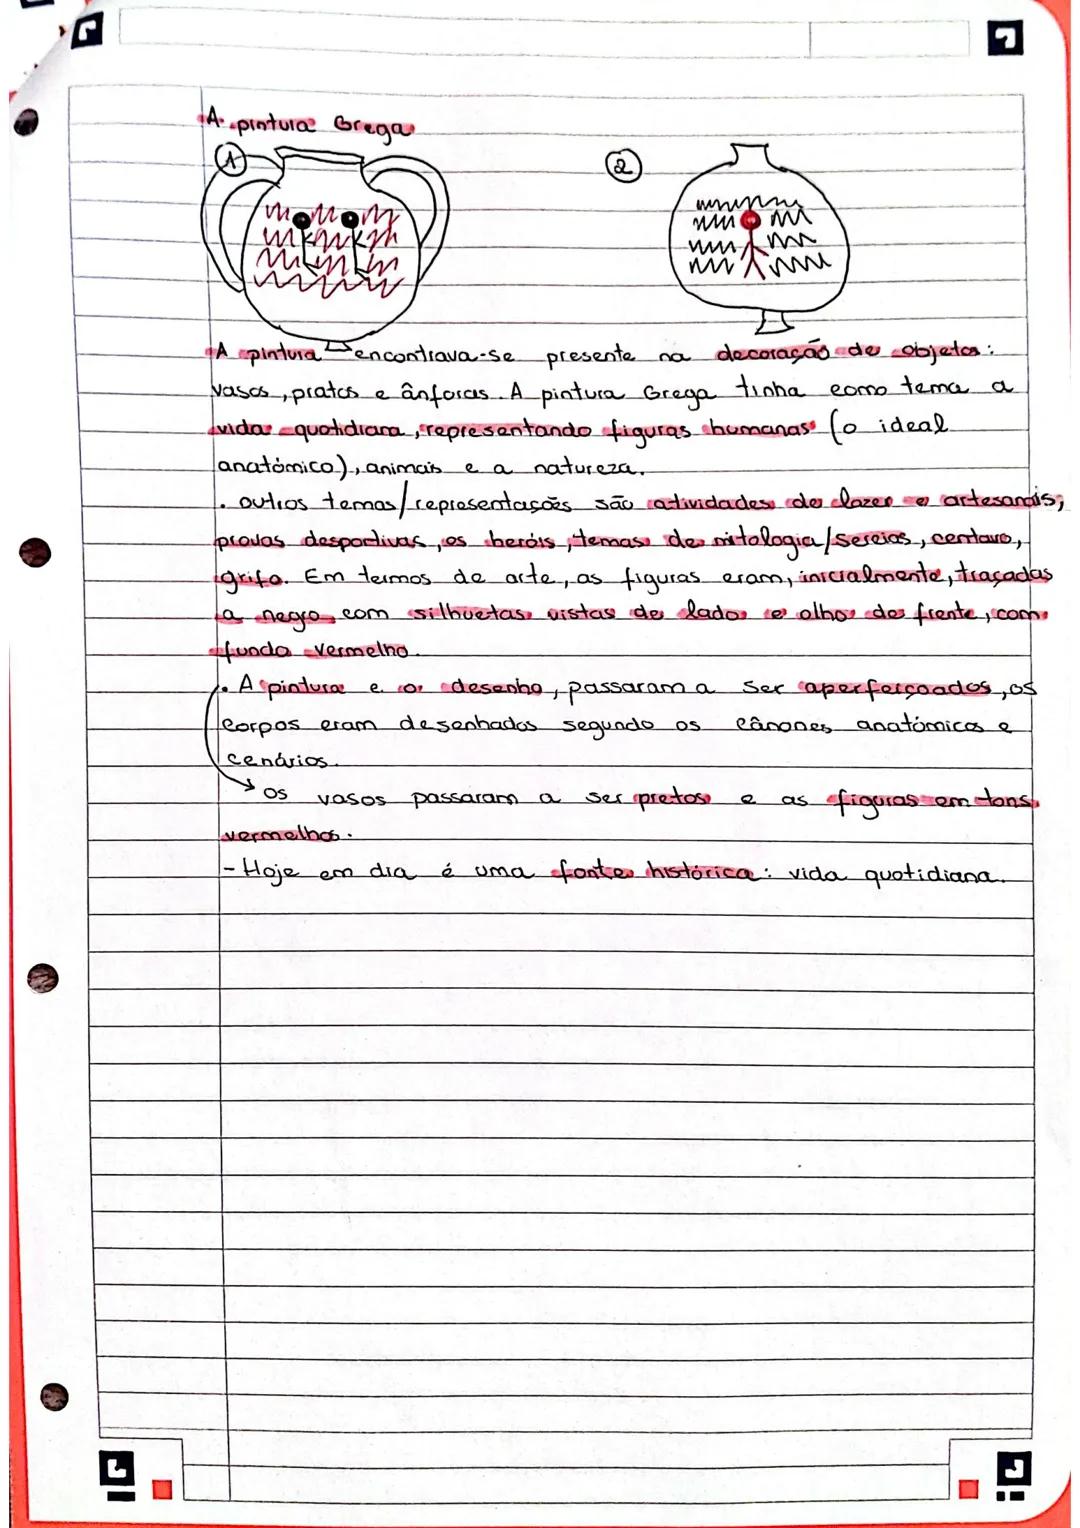 A pintura Grega
1
2
A pintura encontrava-se presente na decoração de objetos:
vasos, pratos e ânforas. A pintura Grega tinha como tema a
vida quotidiana, representando figuras humanas (o ideal
anatómico), animais e a natureza.
. outros temas/representações são atividades de lazer e artesanais,
provas desportivas, os heróis, temas de mitologia/sereias, centauro,
grifo. Em termos de arte, as figuras eram, inicialmente, traçadas
a negro com silhuetas vistas de lado e olho de frente, com
fundo vermelho.
. A pintura e o desenho, passaram a ser aperfeiçoados, os
corpos eram desenhados segundo os cânones anatómicos e
cenários.
→ os vasos passaram a ser pretos e as figuras em tons
vermelhos.
- Hoje em dia é uma fonte histórica: vida quotidiana.